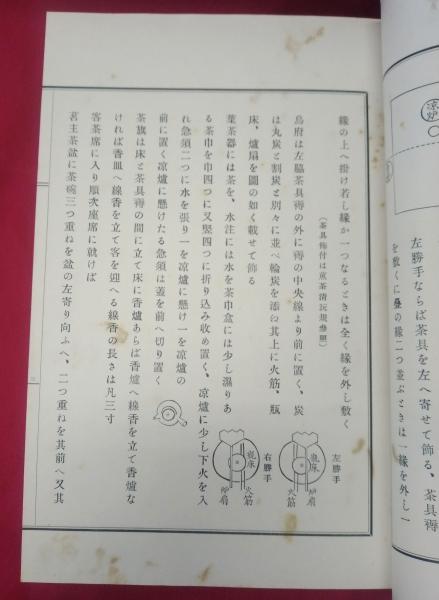 涼炉
左勝手ならば茶具を左へ寄せて飾る、茶具
を敷くに疊の縁二つ並ぶときは一縁を外し一
縁の上へ掛け若し縁か一つなるときは全く縁を外し敷く
(茶具飾付は煎茶清玩規參照)
烏府は左脇茶具褥の外に褥の中央線より前に置く、炭
は丸炭と割炭と別々に並べ輪炭を添ゆ其上に火筋、瓶
床、爐扇を圖の如く載せて飾る
葉茶器には茶を、水注には水を茶巾盒には少し濕りあ
る茶巾を巾四つに又竪四つに折り込み收め置く、凉爐に少し下火を入
れ急須二つに水を張り一を凉爐に懸け一を凉爐の
前に置く凉爐に懸けたる急須は蓋を前へ切り置く
茶旗は床と茶具褥の間に立て床に香爐あらば香爐へ線香を立て香爐な
ければ香皿へ線香を立て客を迎へる線香の長さは凡三寸
客茶席に入り順次座席に就けば
茗主茶盆に茶碗三つ重ねを盆の左寄り向ふへ、二つ重ねを其前へ又其
左勝手
瓶床
炉扇
火筋
右勝手
瓶床
火筋
炉扇